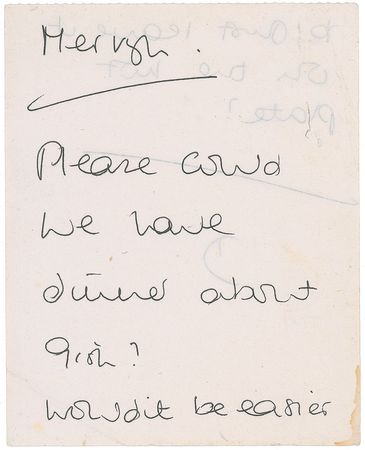 Mervyn.
Please could
we have
dinner about
9ish?
would it be easier